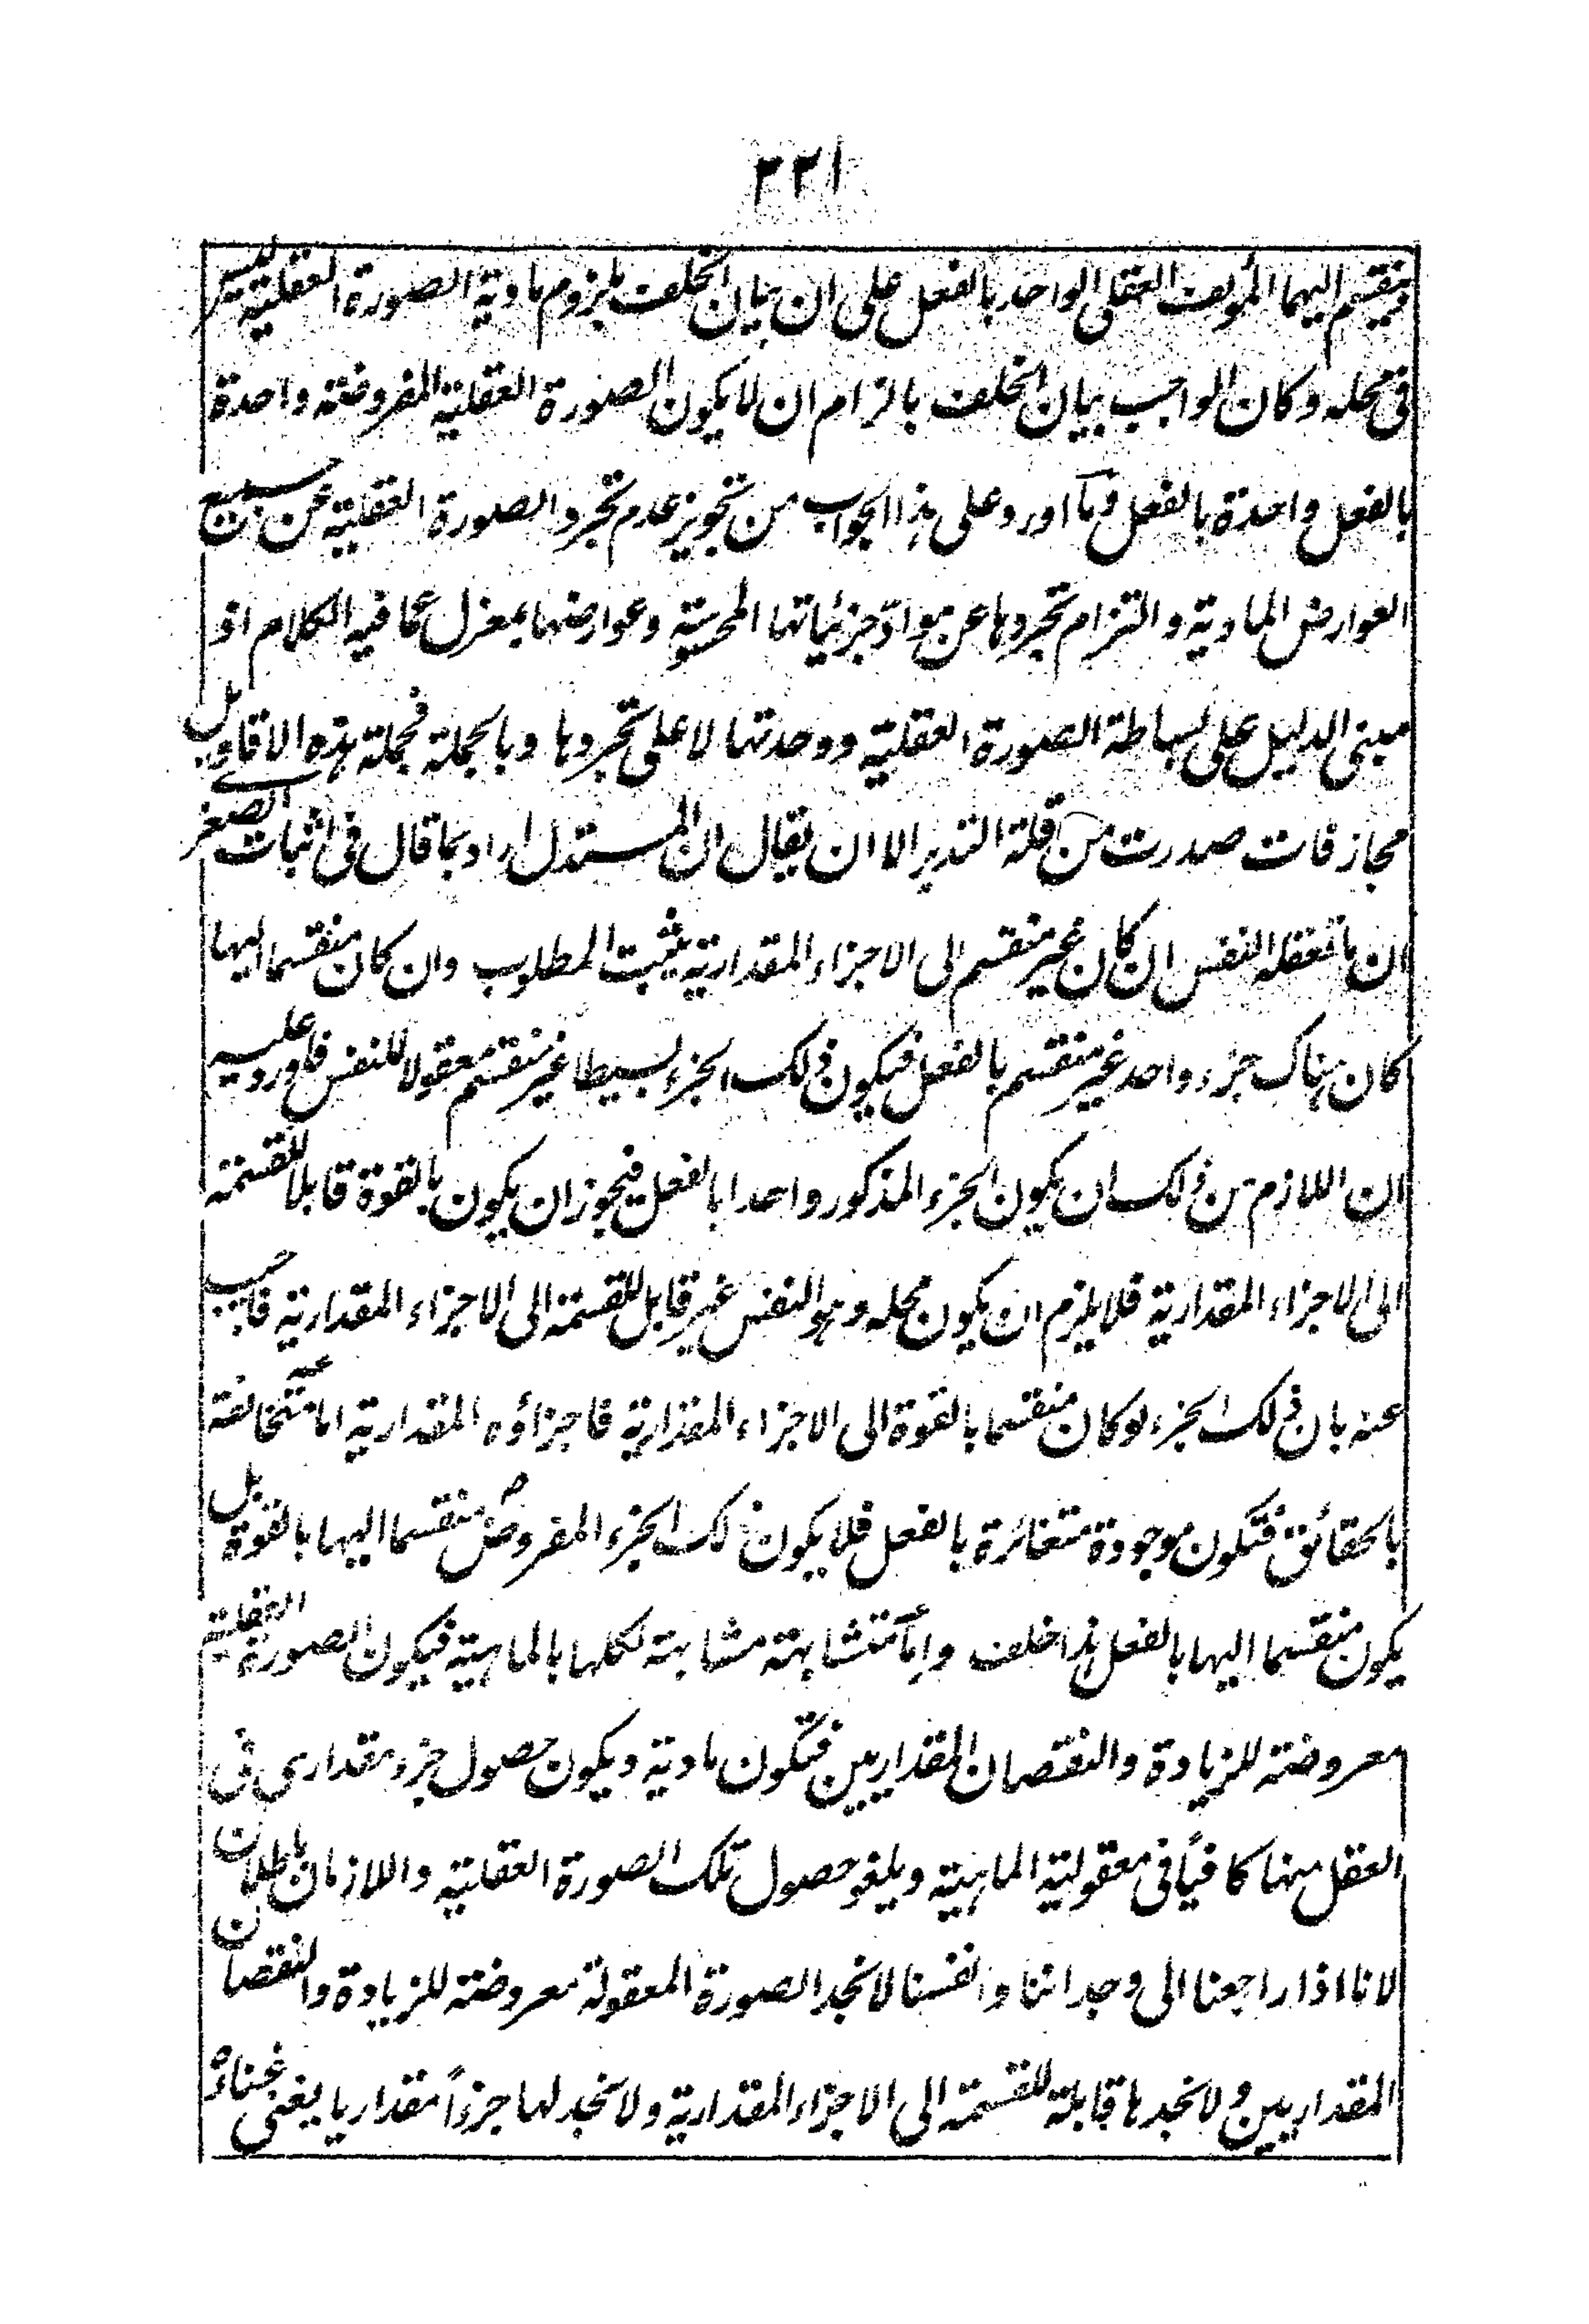 ٢٢١
وينقسم اليهما المؤلف العقلى الواحد بالفعل على ان بيان الخلف بلزوم مادية الصورة العقلية ليس
فى محله وكان الواجب بيان الخلف بالزام ان لا يكون الصورة العقلية المفروضة واحدة
بالفعل واحدة بالفعل وما اورد على هذا الجواب من تجويز عدم تجرد الصورة العقلية عن جميع
العوارض المادية والتزام تجردها عن مواد جزئياتها المحسوسة وعوارضها بمعزل عما فيه الكلام اذ
مبنى الدليل على بساطة الصورة العقلية ووحدتها لا على تجردها وبالجملة فجملة هذه الاقاويل
مجازفات صدرت من قلة التدبر الا ان يقال ان المستدل اراد بما قال فى اثبات الصغرى
ان ما تعقله النفس ان كان غير منقسم الى الاجزاء المقدارية يثبت المطلوب وان كان منقسما اليها
كان هناك جزء واحد غير منقسم بالفعل فيكون ذلك الجزء بسيطا غير منقسم معقولا للنفس فاورد عليه
ان اللازم من ذلك ان يكون الجزء المذكور واحدا بالفعل فيجوز ان يكون بالقوة قابلا للقسمة
الى الاجزاء المقدارية فلا يلزم ان يكون محله وهو النفس غير قابل للقسمة الى الاجزاء المقدارية فاجيب
عنه بان ذلك الجزء لو كان منقسما بالقوة الى الاجزاء المقدارية فاجزاؤه المقدارية اما متخالفة
بالحقائق فتكون موجودة متغائرة بالفعل فلا يكون ذلك الجزء المفروض منقسما اليها بالقوة بل
يكون منقسما اليها بالفعل هذا خلف واما متشابهة مشابهة لكلها بالماهية فيكون الصورة العقلية
معروضة للزيادة والنقصان المقداريين فتكون مادية ويكون حصول جزء مقدارى فى
العقل منها كافيًا فى معقولية الماهية ويلغو حصول تلك الصورة العقلية واللازمان باطلان
لانا اذا راجعنا الى وجداننا وانفسنا لا نجد الصورة المعقولة معروضة للزيادة والنقصان
المقداريين ولا نجدها قابلة للقسمة الى الاجزاء المقدارية ولا نجد لها جزءاً مقداريا يغنى غناءه